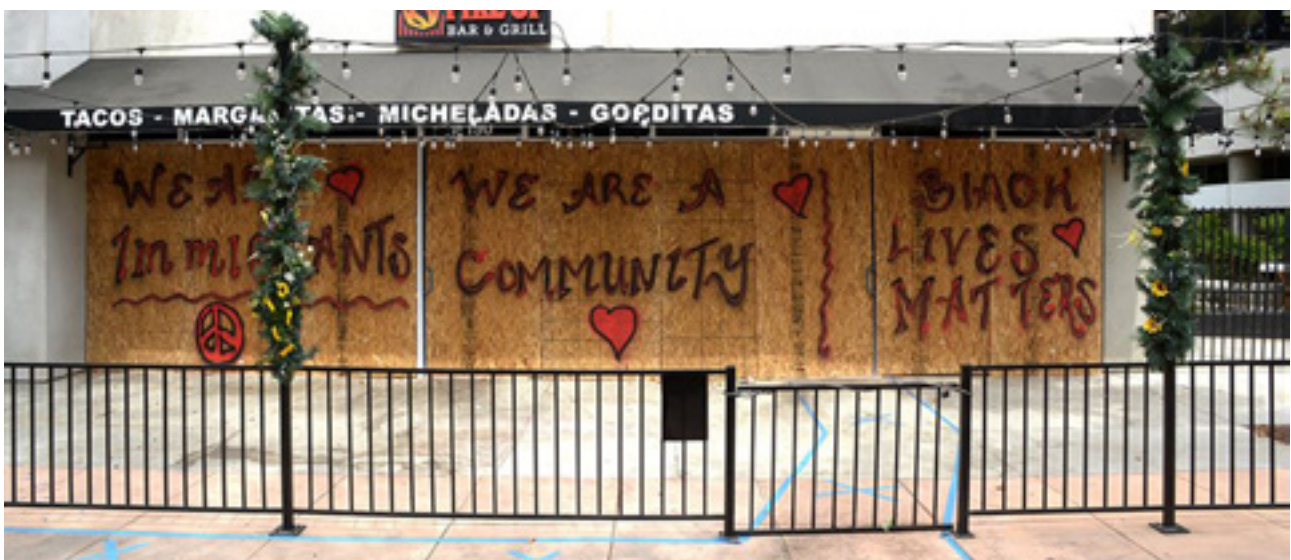 BAR & GRILL
TACOS - MARGARITAS - MICHELADAS - GORDITAS
WE ARE
IMMIGRANTS
WE ARE A
COMMUNITY
BLACK
LIVES
MATTERS